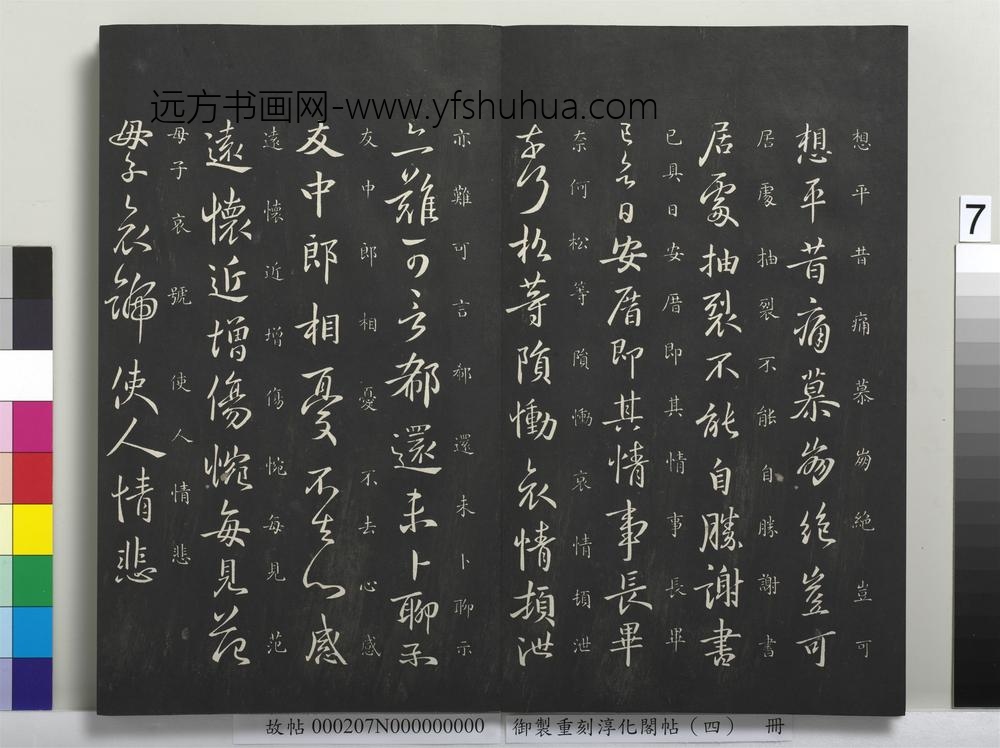 远方书画网-www.yfshuhua.com
想平昔痛慕崩絶豈可
想平昔痛慕崩絶豈可
居處抽裂不能自勝謝書
居處抽裂不能自勝謝書
已具日安厝即其情事長畢
已具日安厝即其情事長畢
奈何松等隕慟哀情頓泄
奈何松等隕慟哀情頓泄
亦難可言郗還未卜聊示
亦難可言郗還未卜聊示
友中郎相憂不去心感
友中郎相憂不去心感
遠懷近增傷惋每見范
遠懷近增傷惋每見范
母子哀號使人情悲
母子哀號使人情悲
7
故帖 000207N000000000 御製重刻淳化閣帖（四） 冊